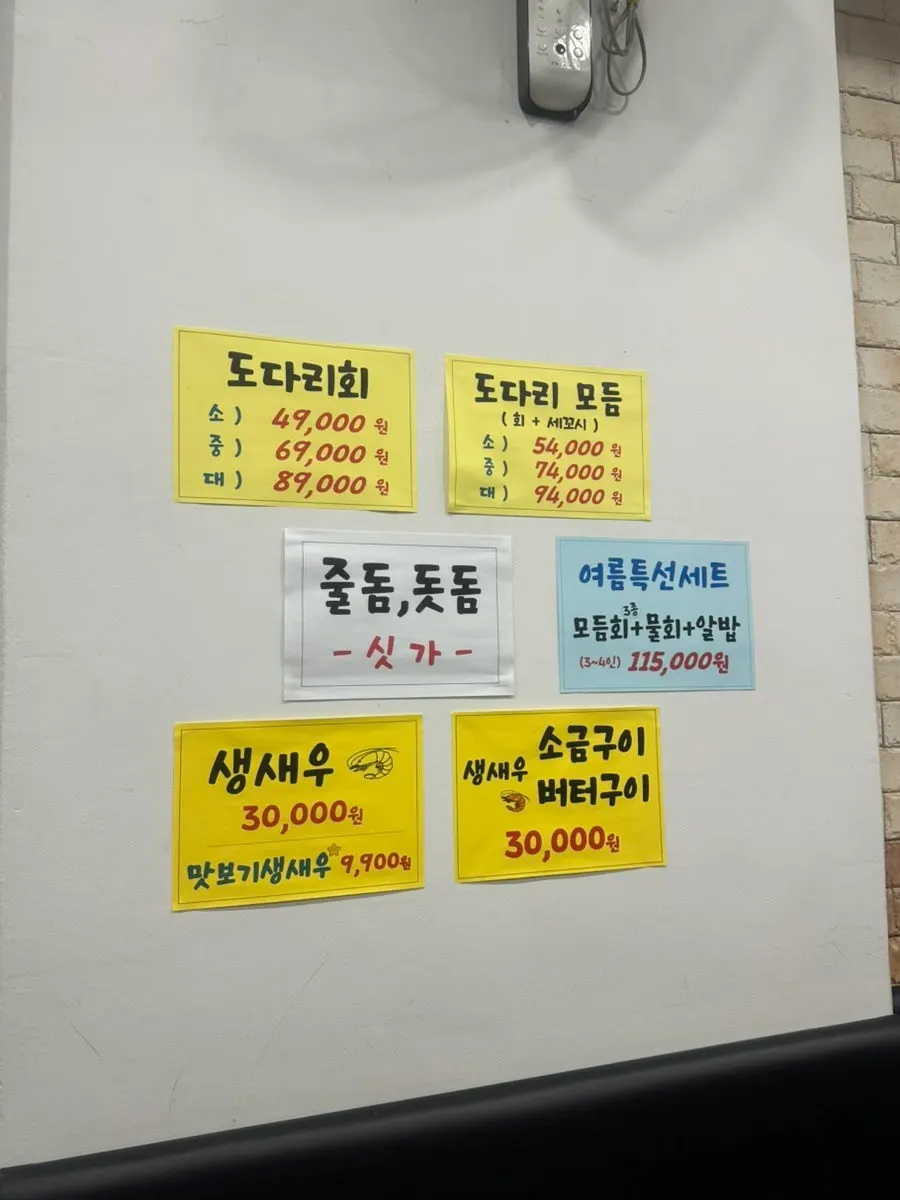 도다리회
소) 49,000원
중) 69,000원
대) 89,000원
도다리 모듬
(회 + 세꼬시)
소) 54,000원
중) 74,000원
대) 94,000원
줄돔,돗돔
- 싯가 -
여름특선세트
3종
모듬회+물회+알밥
(3~4인) 115,000원
생새우
30,000원
맛보기생새우 9,900원
생새우 소금구이
버터구이
30,000원